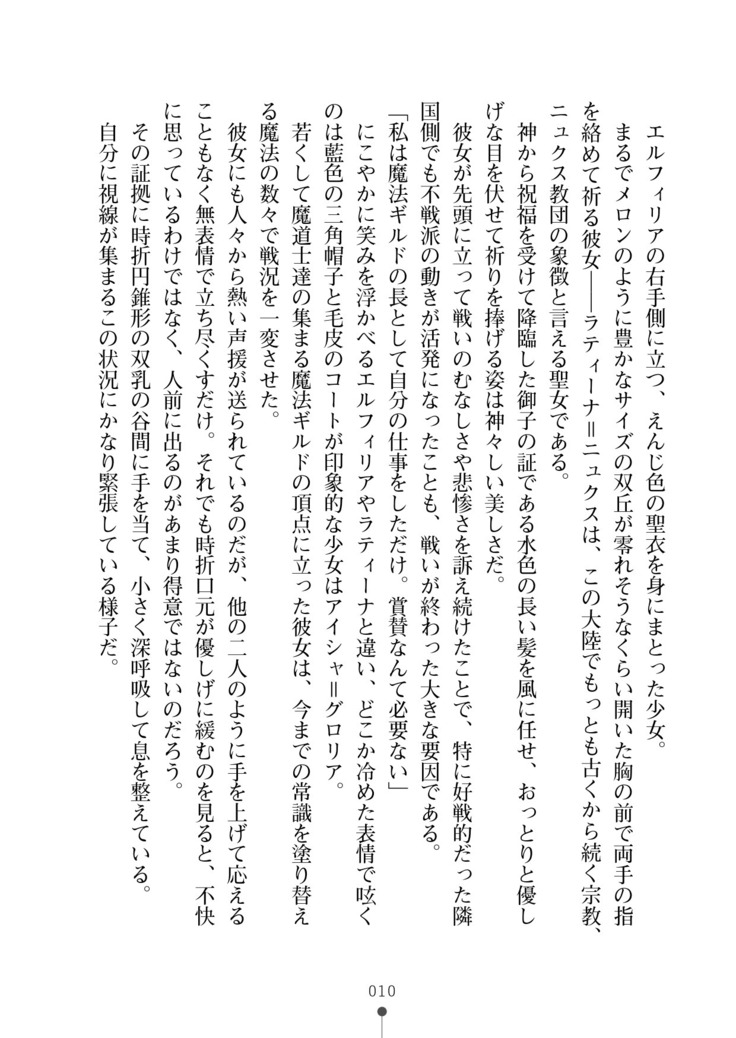 エルフィリアの右手側に立つ、えんじ色の聖衣を身にまとった少女。
まるでメロンのように豊かなサイズの双丘が零れそうなくらい開いた胸の前で両手の指
を絡めて祈る彼女――ラティーナ＝ニュクスは、この大陸でもっとも古くから続く宗教、
ニュクス教団の象徴と言える聖女である。
神から祝福を受けて降臨した御子の証である水色の長い髪を風に任せ、おっとりと優し
げな目を伏せて祈りを捧げる姿は神々しい美しさだ。
彼女が先頭に立って戦いのむなしさや悲惨さを訴え続けたことで、特に好戦的だった隣
国側でも不戦派の動きが活発になったことも、戦いが終わった大きな要因である。
「私は魔法ギルドの長として自分の仕事をしただけ。賞賛なんて必要ない」
にこやかに笑みを浮かべるエルフィリアやラティーナと違い、どこか冷めた表情で呟く
のは藍色の三角帽子と毛皮のコートが印象的な少女はアイシャ＝グロリア。
若くして魔道士達の集まる魔法ギルドの頂点に立った彼女は、今までの常識を塗り替え
る魔法の数々で戦況を一変させた。
彼女にも人々から熱い声援が送られているのだが、他の二人のように手を上げて応える
こともなく無表情で立ち尽くすだけ。それでも時折口元が優しげに緩むのを見ると、不快
に思っているわけではなく、人前に出るのがあまり得意ではないのだろう。
その証拠に時折円錐形の双乳の谷間に手を当て、小さく深呼吸して息を整えている。
自分に視線が集まるこの状況にかなり緊張している様子だ。
010